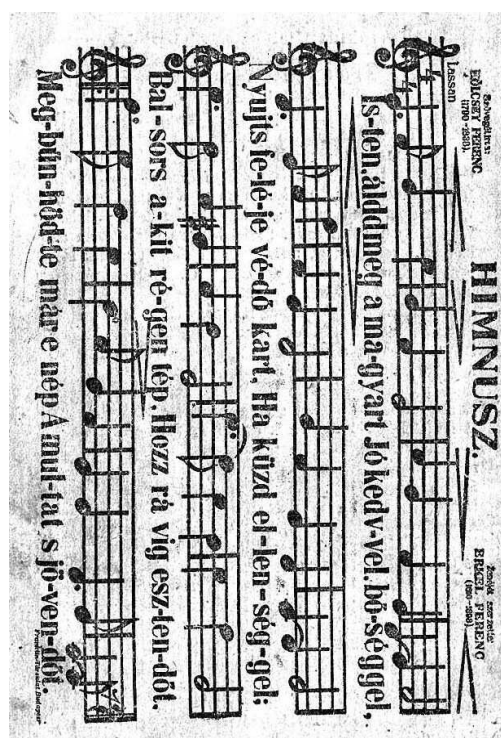 HIMNUSZ.
Szövegét írta:
KÖLCSEY FERENC
(1790-1838).
Zenéjét szerzette:
ERKEL FERENC
(1810-1893).
Lassan
Is-ten, áldd meg a ma-gyart Jó kedv-vel, bő-séggel,
Nyujts fe-lé-je vé-dő kart, Ha küzd el-len-ség-gel;
Bal-sors a-kit ré-gen tép, Hozz rá vig esz-ten-dőt.
Meg-bűn-hőd-te már e nép A mul-tat s jö-ven-dőt.
Franklin-Társulat Budapest